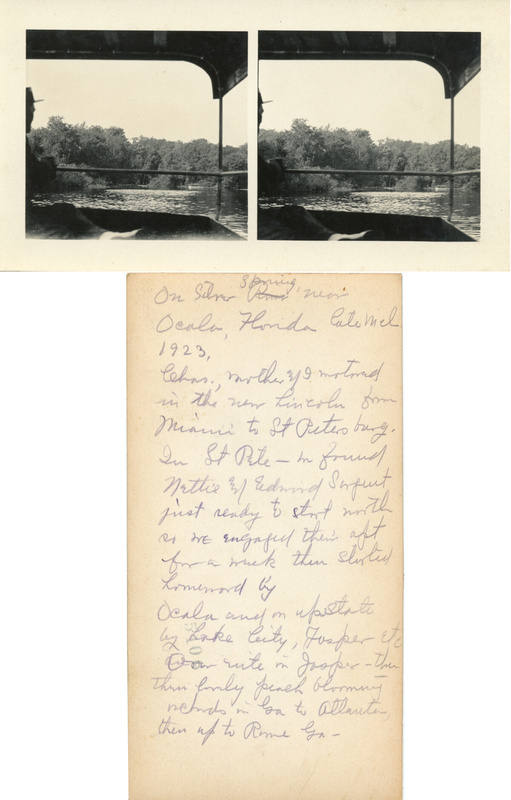 On Silver Spring, near
Ocala, Florida late Mch
1923,
Chas., mother & I motored
in the new Lincoln from
Miami to St Petersburg.
In St Pete — we found
Nettie & Edward Sargent
just ready to start north
so we engaged their apt
for a week then started
homeward by
Ocala and on up state
by Lake City, Jasper etc
en route in Jasper - then
thru lovely peach blooming
in Ga to Atlanta,
then up to Rome Ga -